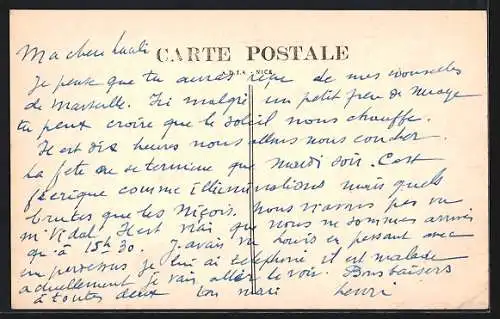 Ma chère
CARTE POSTALE
Je pense que tu auras reçu de mes nouvelles
de Marseille. Ici malgré un petit peu de nuage
tu peux croire que le soleil nous chauffe.
Il est dix heures nous allons nous coucher.
La fête ne se termine que mardi soir. C'est
féerique comme illuminations mais quels
brutes que les Niçois. Nous n'avons pas vu
Mr Vidal. Il est vrai que nous ne sommes arrivés
qu'à 15h30. J'avais vu Louis en passant avec
je lui ai téléphoné il est malade
actuellement je vais aller le voir. Bons baisers
à toutes deux ton mari Henri